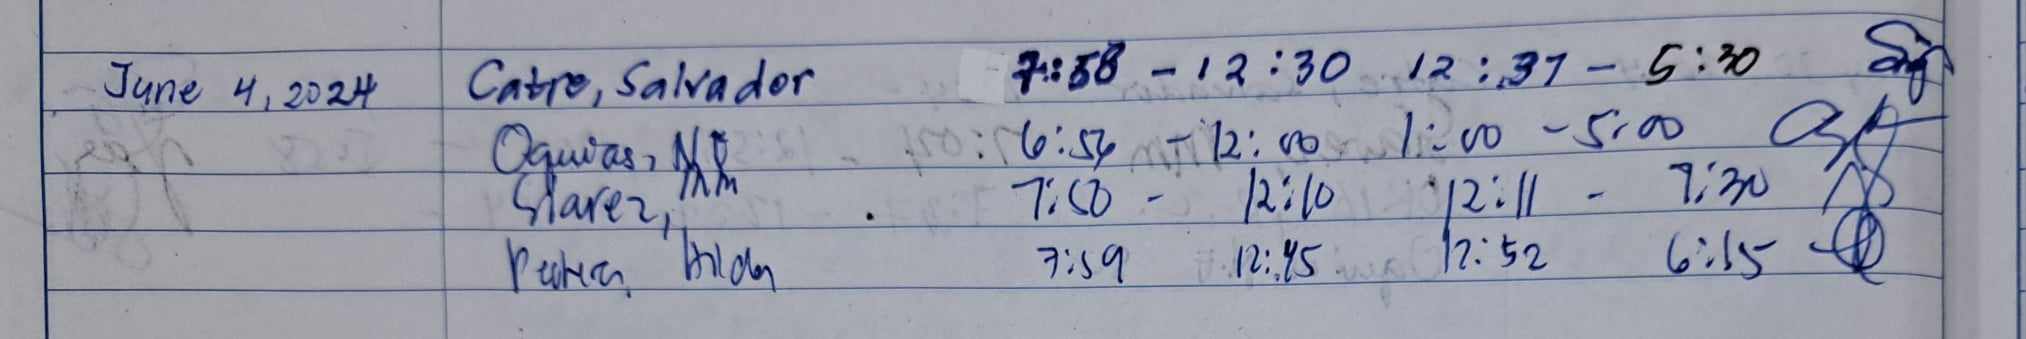 June 4, 2024 Catre, Salvador 7:58 - 12:30 12:37 - 5:30
Oquias, 6:56 - 12:00 1:00 - 5:00
7:50 - 12:10 12:11 - 7:30
Hilda 7:59 12:45 12:52 6:15